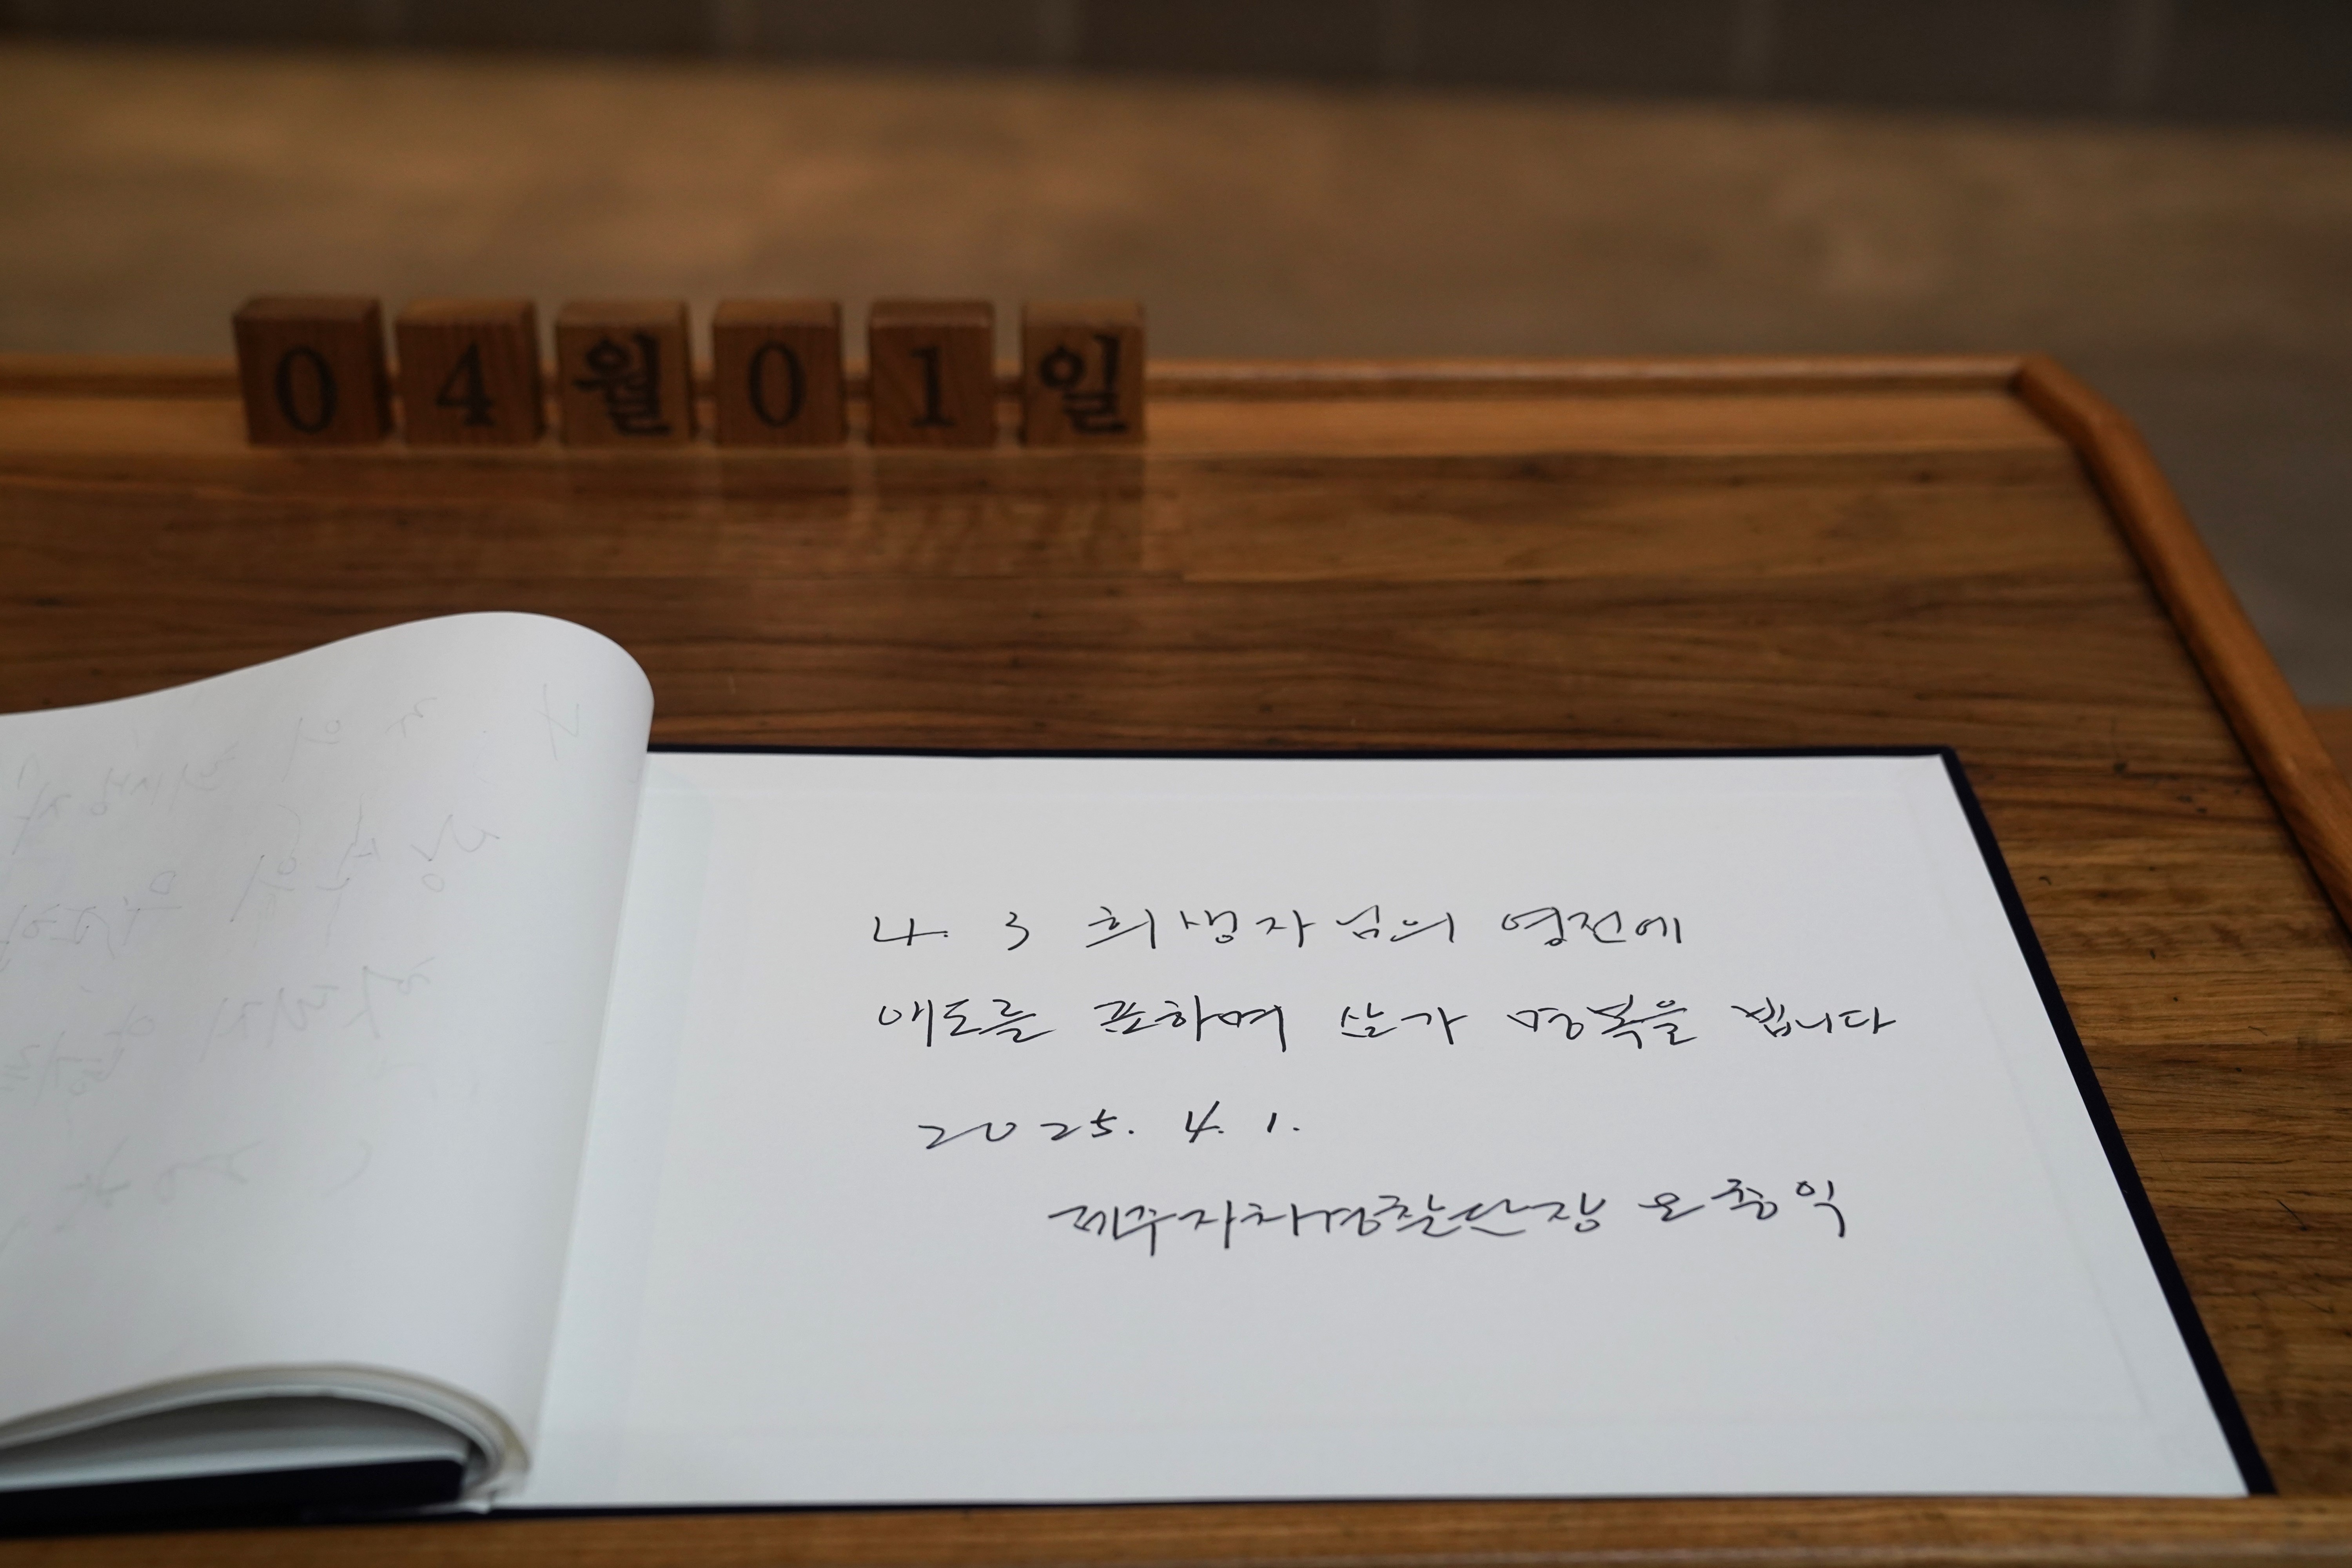 04월01일
4. 3 희생자님의 영전에
애도를 표하며 삼가 명복을 빕니다
2025. 4. 1.
제주자치경찰단장 오충익